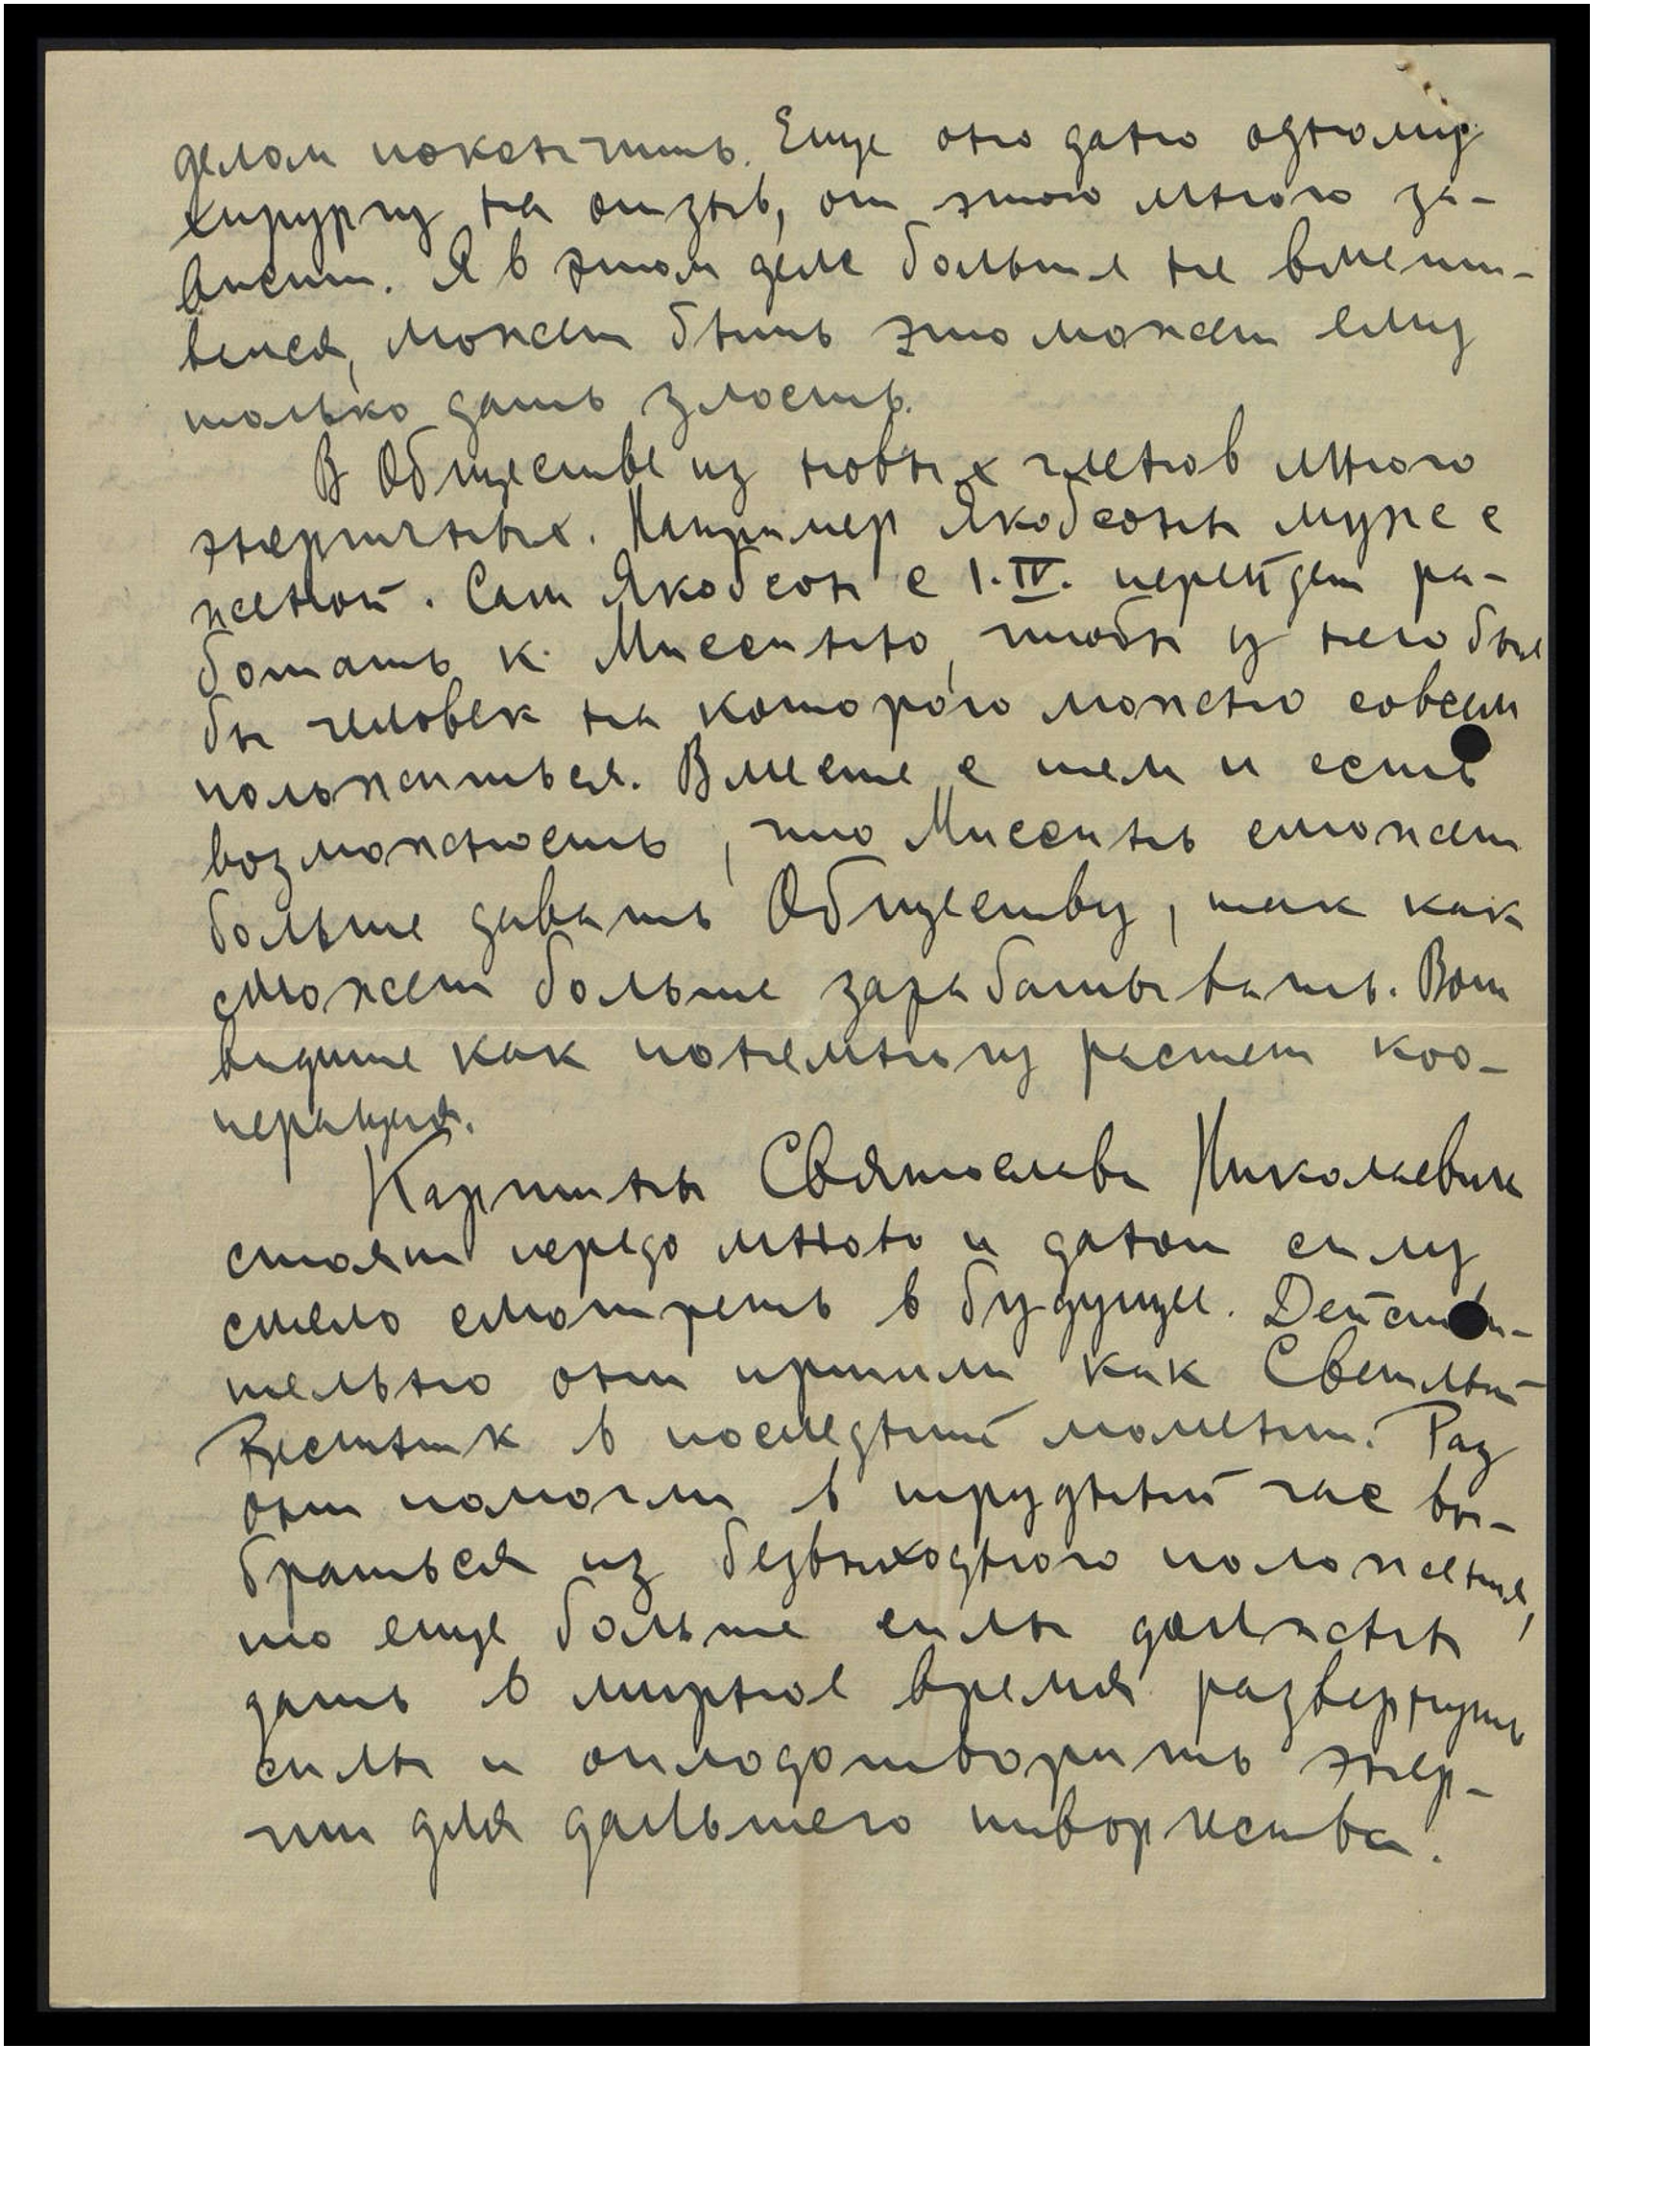 делом покончить. Еще оно дано одному
хирургу на отзыв, от этого много за-
висит. Я в этом деле больше не вмеши-
вался, может быть это может ему
только дать злость.
В Обществе из новых членов много
энергичных. Например Якобсоны муж с
женой. Сам Якобсон с 1.IV. перейдет ра-
ботать к Миссиню, чтобы у него был
бы человек на которого можно совсем
положиться. Вместе с тем и есть
возможность, что Миссинь сможет
больше давать Обществу, так как
сможет больше зарабатывать. Вот
видите как понемногу растет коо-
перация.
Картины Святослава Николаевича
стоят передо мною и дают силу
смело смотреть в будущее. Действи-
тельно они пришли как Светлый
Вестник в последний момент. Раз
они помогли в трудный час вы-
браться из безвыходного положения,
то еще больше силы должны
дать в мирное время развернуть
силы и оплодотворить энер-
гии для дальшего творчества.